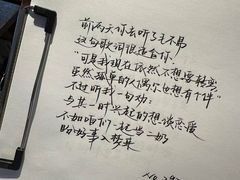 前两天你去听了毛不易
这句歌词很适合你
"可是我现在依然不想要转实
虽然孤单的人偶尔也想有个伴"
不过听我一句劝:
与其一时兴起的想谈恋爱
不如咱们一起当二奶
盼好事入梦来